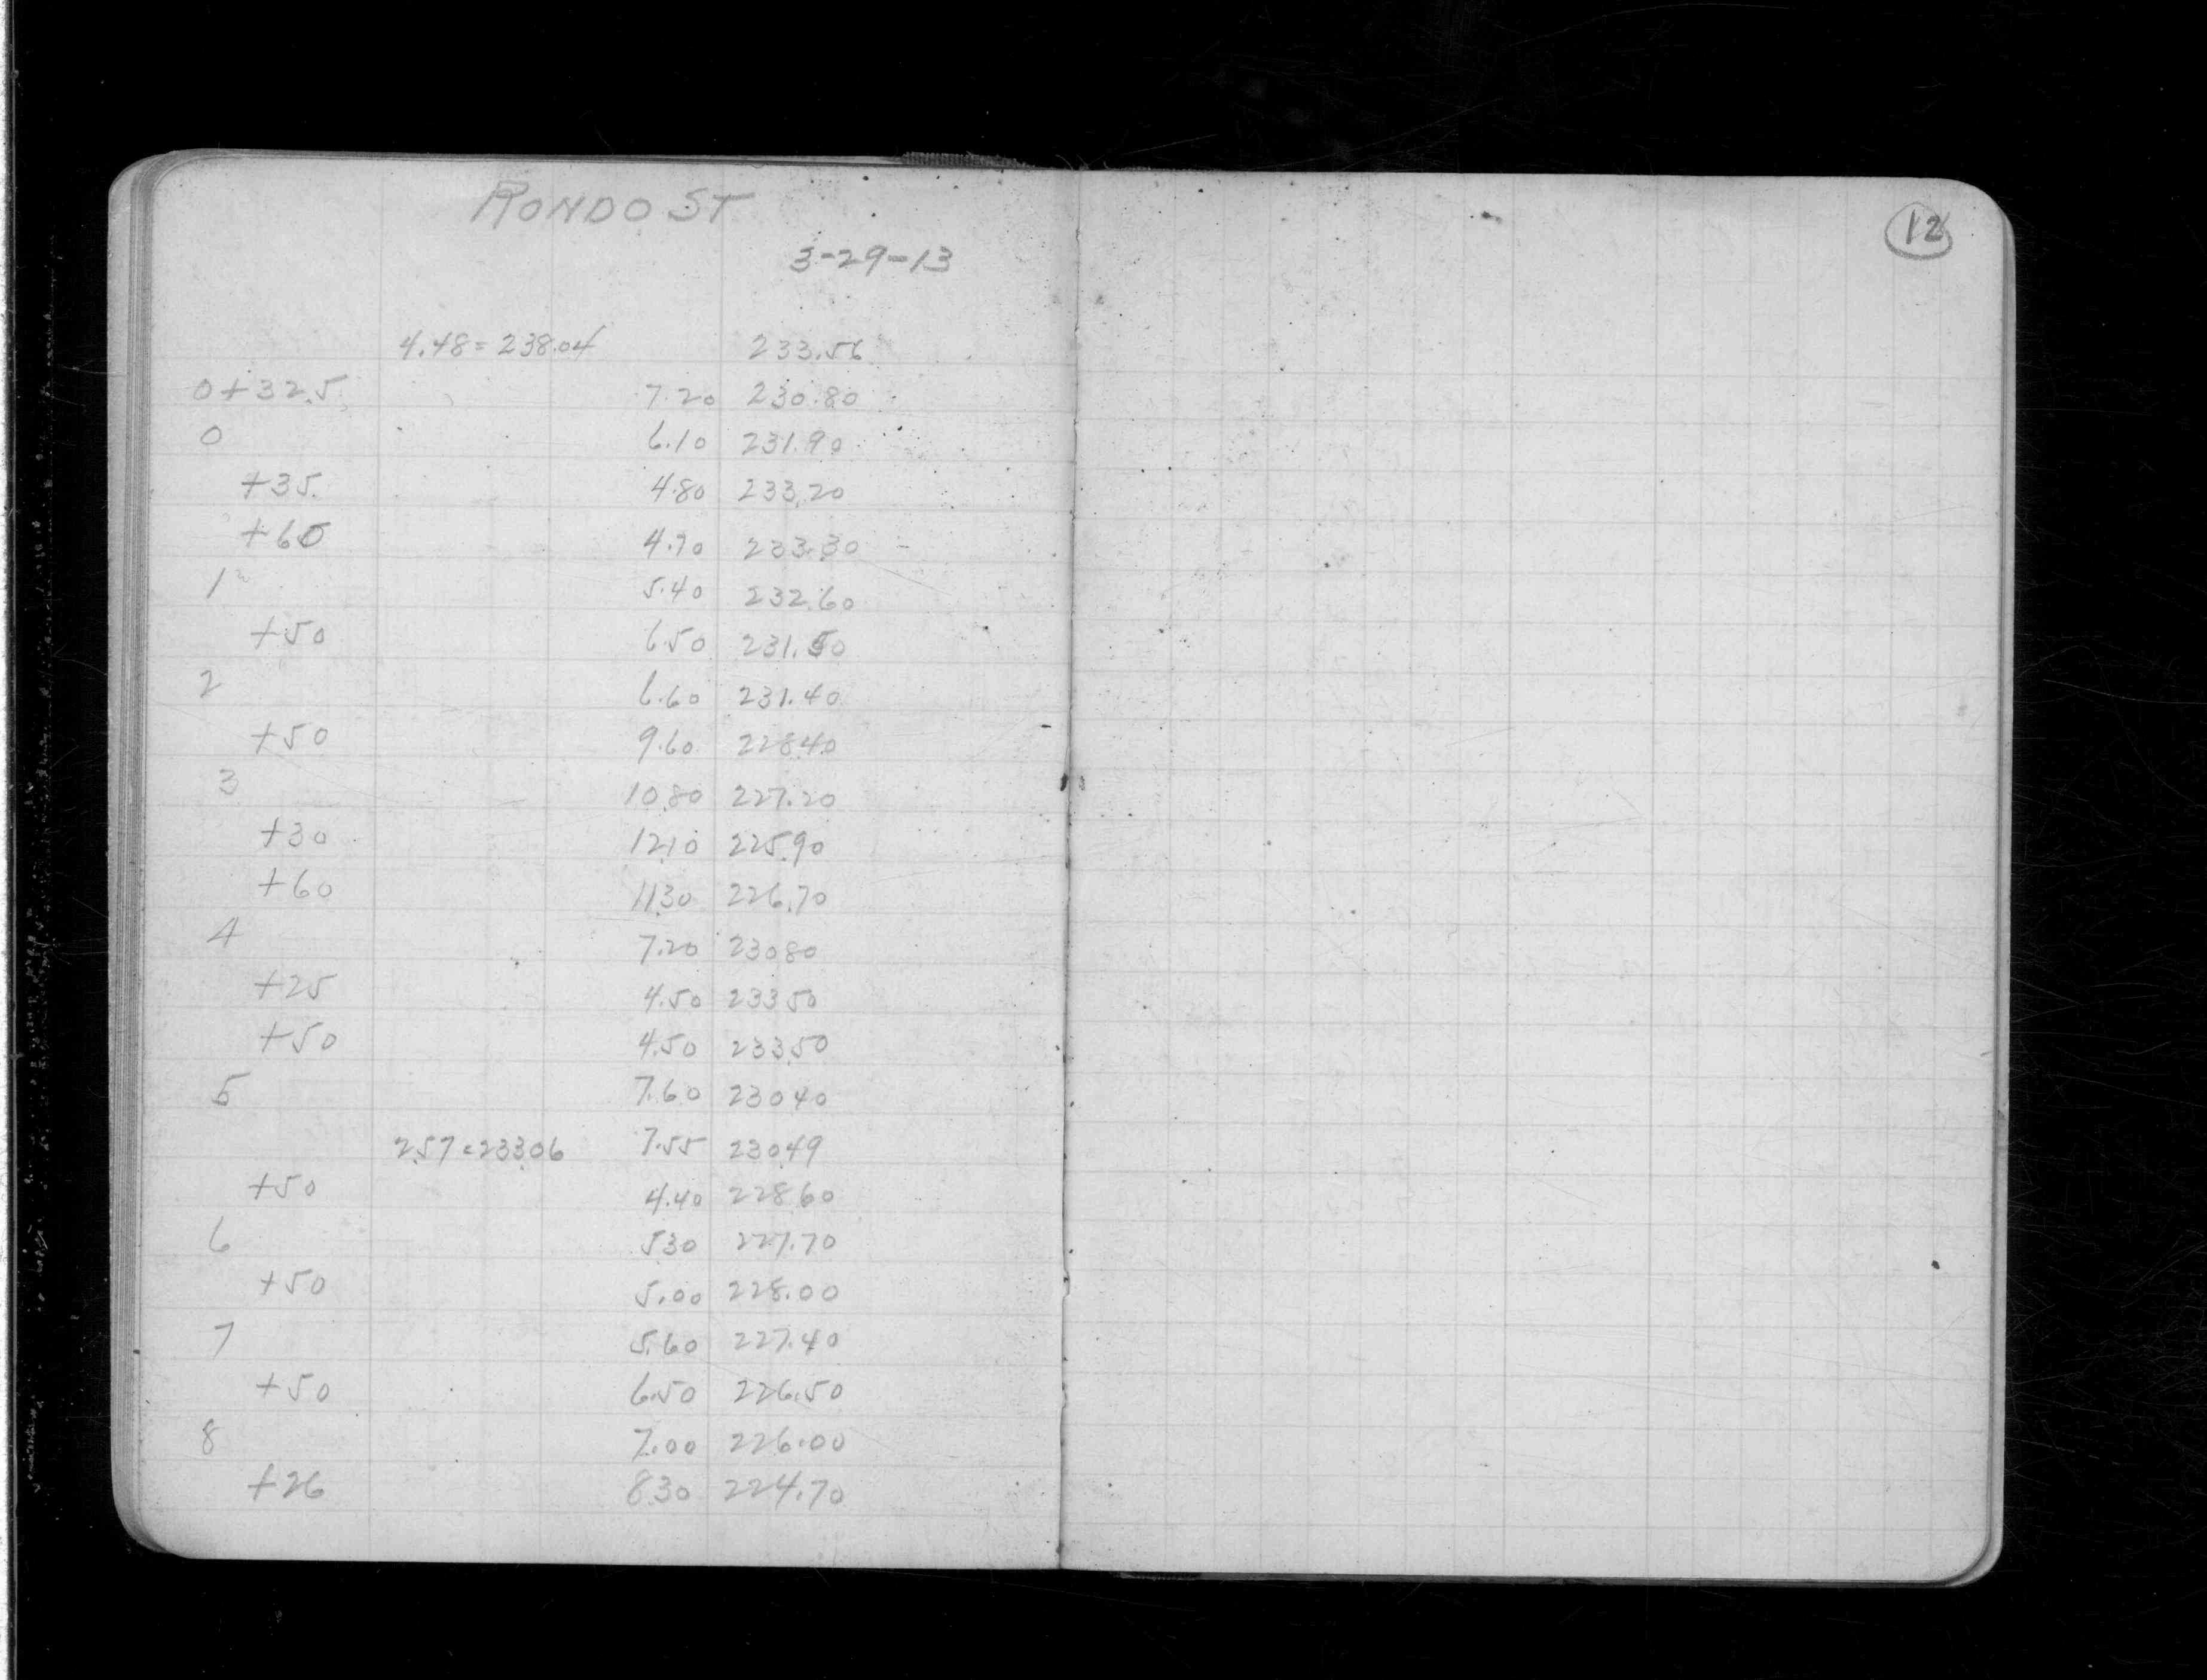 RONDO ST
3-29-13
12
4.48 = 238.04 233.56
0+32.5 7.20 230.80
0 6.10 231.90
+35 4.80 233.20
+60 4.70 233.30
1 5.40 232.60
+50 6.50 231.50
2 6.60 231.40
+50 9.60 228.40
3 10.80 227.20
+30 12.10 225.90
+60 11.30 226.70
4 7.20 230.80
+25 4.50 233.50
+50 4.50 233.50
5 7.60 230.40
2.57 = 233.06 7.55 230.49
+50 4.40 228.60
6 5.30 227.70
+50 5.00 228.00
7 5.60 227.40
+50 6.50 226.50
8 7.00 226.00
+26 8.30 224.70